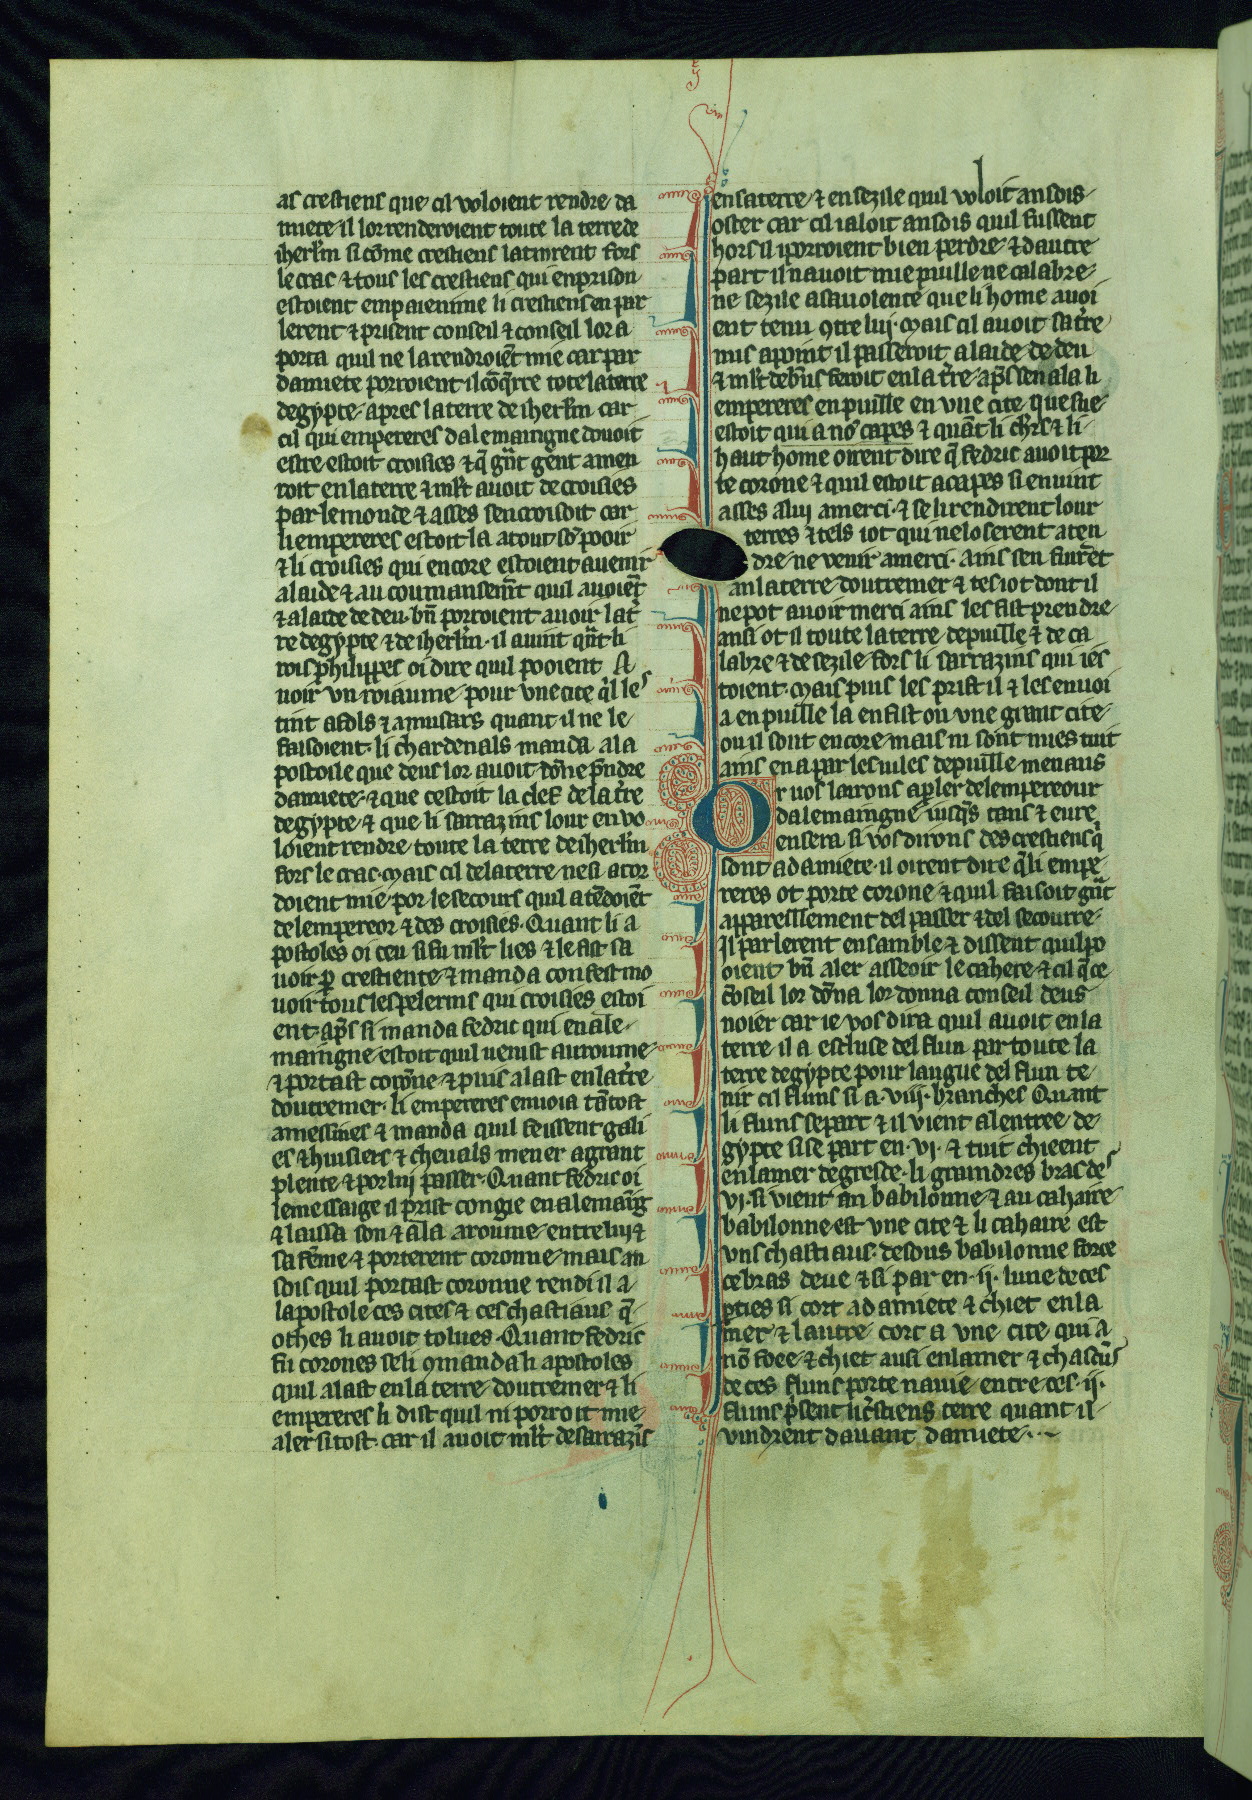 as crestiens que cil voloient rendre da
miete il lor renderoient toute la terre de
iherlm̄ si cōme crestiens la tinrent fors
le crac ⁊ tous les crestiens qui en prison
estoient em paienime li crestiens en par
lerent ⁊ prisent conseil ⁊ conseil lor a
porta quil ne la rendroiēt mie car par
damiete porroient il cōq̄rre tote la terre
degypte apres la terre de iherlm̄ car
cil qui empereres dalemaingne douoit
estre estoit croisies ⁊ q̄ grāt gent amen
roit en la terre ⁊ ml̄t auoit de croisies
par le monde ⁊ asses sen croisoit car
li empereres estoit la a tout sō pooir
⁊ li croisies qui encore estoient a uenir
a laide ⁊ au coumansemēt quil auoiēt
⁊ a laide de deu bn̄ porroient auoir la t̄
re degypte ⁊ de iherlm̄ · il auint q̄nt li
rois phelippes oi dire quil pooient A
uoir vn roiaume pour vne cite q̄l les
tint a fols ⁊ a musars quant il ne le
faisoient · li chardenals manda a la
postoile que deus lor auoit dōne p̄ndre
damiete ⁊ que cestoit la clef de la t̄re
degypte ⁊ que li sarrazins lour en vo
loient rendre toute la terre de iherlm̄
fors le crac · Mais cil de la terre ne si acor
doient mie por le secours quil atēdoiēt
de lempereor ⁊ des croisies · Quant li a
postoles oi ceu si fu ml̄t lies ⁊ le fist sa
uoir p̄ crestiente ⁊ manda con fest mo
uoir tous les pelerins qui croisies estoi
ent · ap̄s si manda fedric qui en ale
maingne estoit quil uenist a roume
⁊ portast corōne ⁊ puis alast en la t̄re
doutremer · li empereres enuoia tātost
a messines ⁊ manda quil feissent gali
es ⁊ huisiers ⁊ cheuals mener a grant
plente ⁊ por lui passer · Quant fedric oi
le messaige il prist congie en alemaīg
⁊ laissa son ⁊ ala a roume entre lui ⁊
sa fēme ⁊ porterent coronne mais an
sois quil portast coronne rendi il a
lapostole ces cites ⁊ ces chastiaus q̄
othes li auoit tolues · Quant fedric
fu corones se li 9manda li apostoles
quil alast en la terre doutremer ⁊ li
empereres li dist quil ni porroit mie
aler si tost · car il auoit ml̄t de sarrazīs
en sa terre ⁊ en sezile quil voloit ansois
oster car cil i aloit ansois quil fussent
hors il i porroient bien perdre ⁊ dautre
part il nauoit mie puille ne calabre
ne sezile a sa volente que li home auoi
ent tenu 9tre lui · Mais cil auoit sa t̄re
mis a point il passeroit a laide de deu
⁊ ml̄t de bn̄s feroit en la t̄re · ap̄s sen ala li
empereres en puille en vne cite que sue
estoit qui a nō capes ⁊ quāt li ch̄rs ⁊ li
haut home oirent dire q̄ fedric auoit por
te corone ⁊ quil estoit a capes si en uint
asses a lui a merci · ⁊ se li rendirent lour
terres ⁊ tels iot qui ne loserent aten
dre ne venir a merci · ains sen fuirēt
an la terre doutremer ⁊ tes iot dont il
ne pot auoir merci ains les fist prendre
ansi ot il toute la terre de puille ⁊ de ca
labre ⁊ de sezile fors li sarrazins qui ies
toient · Mais puis les prist il ⁊ les enuoi
a en puille la en fist ou vne grant cite
ou il sont encore mais ni sont mies tuit
ains en a par les uiles de puille menans
Or uos lairons a p̄ler de lempereour
dalemaingne iusq̄s tans ⁊ eure
en sera si vos dirons des crestiens q̄
sont a damiete · il oirent dire q̄ li empe
reres ot porte corone ⁊ quil faisoit grāt
apparellement del passer ⁊ del secourre
Il parlerent ensamble ⁊ dissent quil po
oient bn̄ aler asseoir le cahere ⁊ cil q̄ ce
cōseil lor dōna lor donna conseil deus
noier car ie vos dira quil auoit en la
terre il a escluse del flun par toute la
terre degypte pour langue del flun te
nir cil fluns si a · viij · branches Quant
li fluns se part ⁊ il vient a lentree de
gypte si se part en · vj · ⁊ tuit chieent
en la mer de gresse · li graindres bras des
vj · si vient an babilonne ⁊ au cahaire
babilonne est vne cite ⁊ li cahaire est
vns chastiaus · desous babilonne force
ce bras deue ⁊ si par en · ij · lune de ces
p̄ties si cort a damiete ⁊ chiet en la
mer ⁊ lautre cort a vne cite qui a
nō foee ⁊ chiet ausi en la mer ⁊ chascūs
de ces fluns porte nauie entre ces · ij ·
fluns p̄sent li c̄stiens terre quant il
vindrent dauant damiete ·